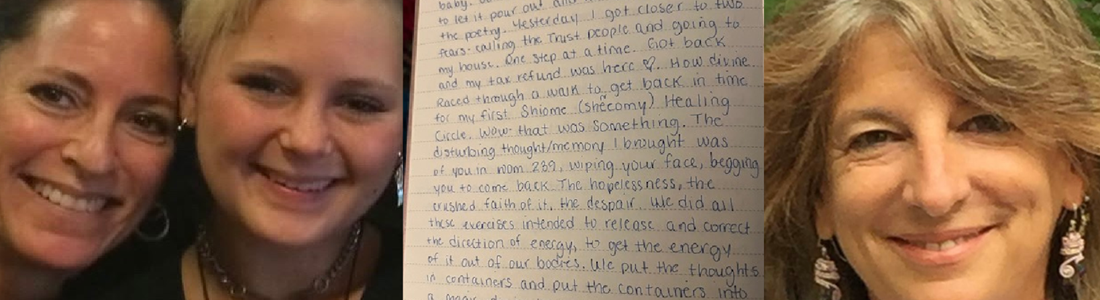 baby.
to let it pour out and
the poetry. Yesterday I got closer to two
fears- calling the Trust people and going to
my house. One step at a time. Got back
and my tax refund was here ♡. How divine.
Raced through a walk to get back in time
for my first Shiome (shēcomy) Healing
Circle. Wow- that was something. The
disturbing thought/memory I brought was
of you in room 289, wiping your face, begging
you to come back. The hopelessness, the
crushed faith of it, the despair. We did all
these exercises intended to release and correct
the direction of energy, to get the energy
of it out of our bodies. We put the thoughts
in containers and put the containers into
a